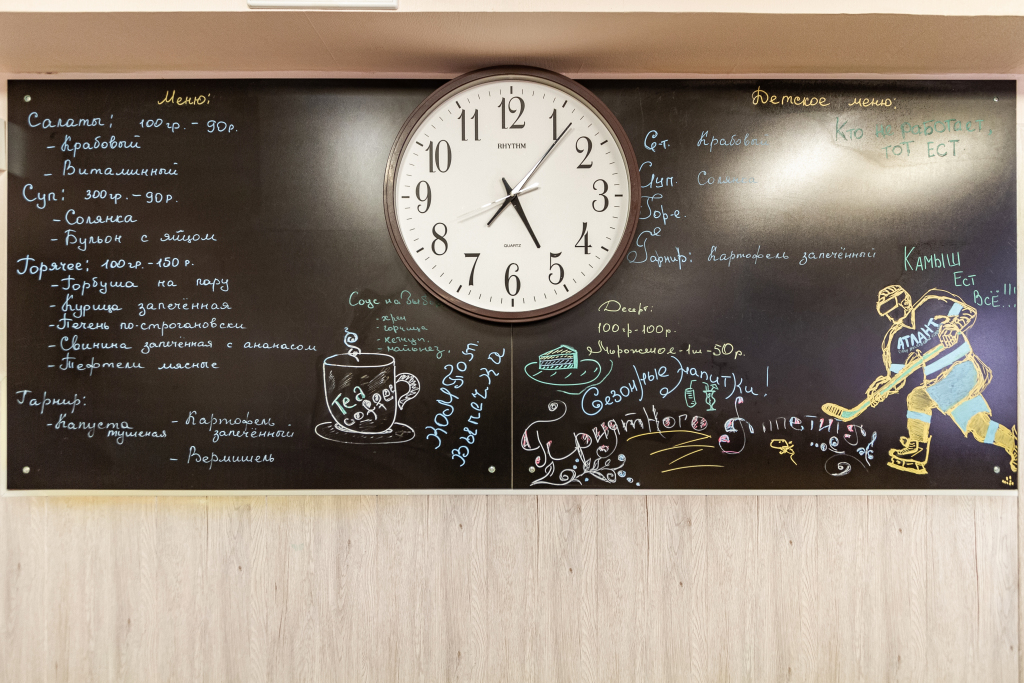 Меню:
Салаты: 100гр. - 90р.
- Крабовый
- Витаминный
Суп: 300гр. - 90р.
- Солянка
- Бульон с яйцом
Горячее: 100гр. - 150р.
- Горбуша на пару
- Курица запечённая
- Печень по-строгановски
- Свинина запечённая с ананасом
- Тефтели мясные
Гарнир:
- Капуста тушеная
- Картофель запечённый
- Вермишель
Соус на
- хрен
- горчица
- кетчуп.
- майонез.
Tea
coffee
Выпечка
12
1
2
3
4
5
6
7
8
9
10
11
RHYTHM
QUARTZ
Детское меню:
Крабовый
Солянка
Гор-е.
Гарнир: Картофель запечённый
Кто не работает,
тот ЕСТ
Камыш
Ест
Всё!!!
АТЛАНТ
Десерт:
100гр-100р.
Мороженое-1ш-50р.
Сезонные напитки!
Приятного аппетита